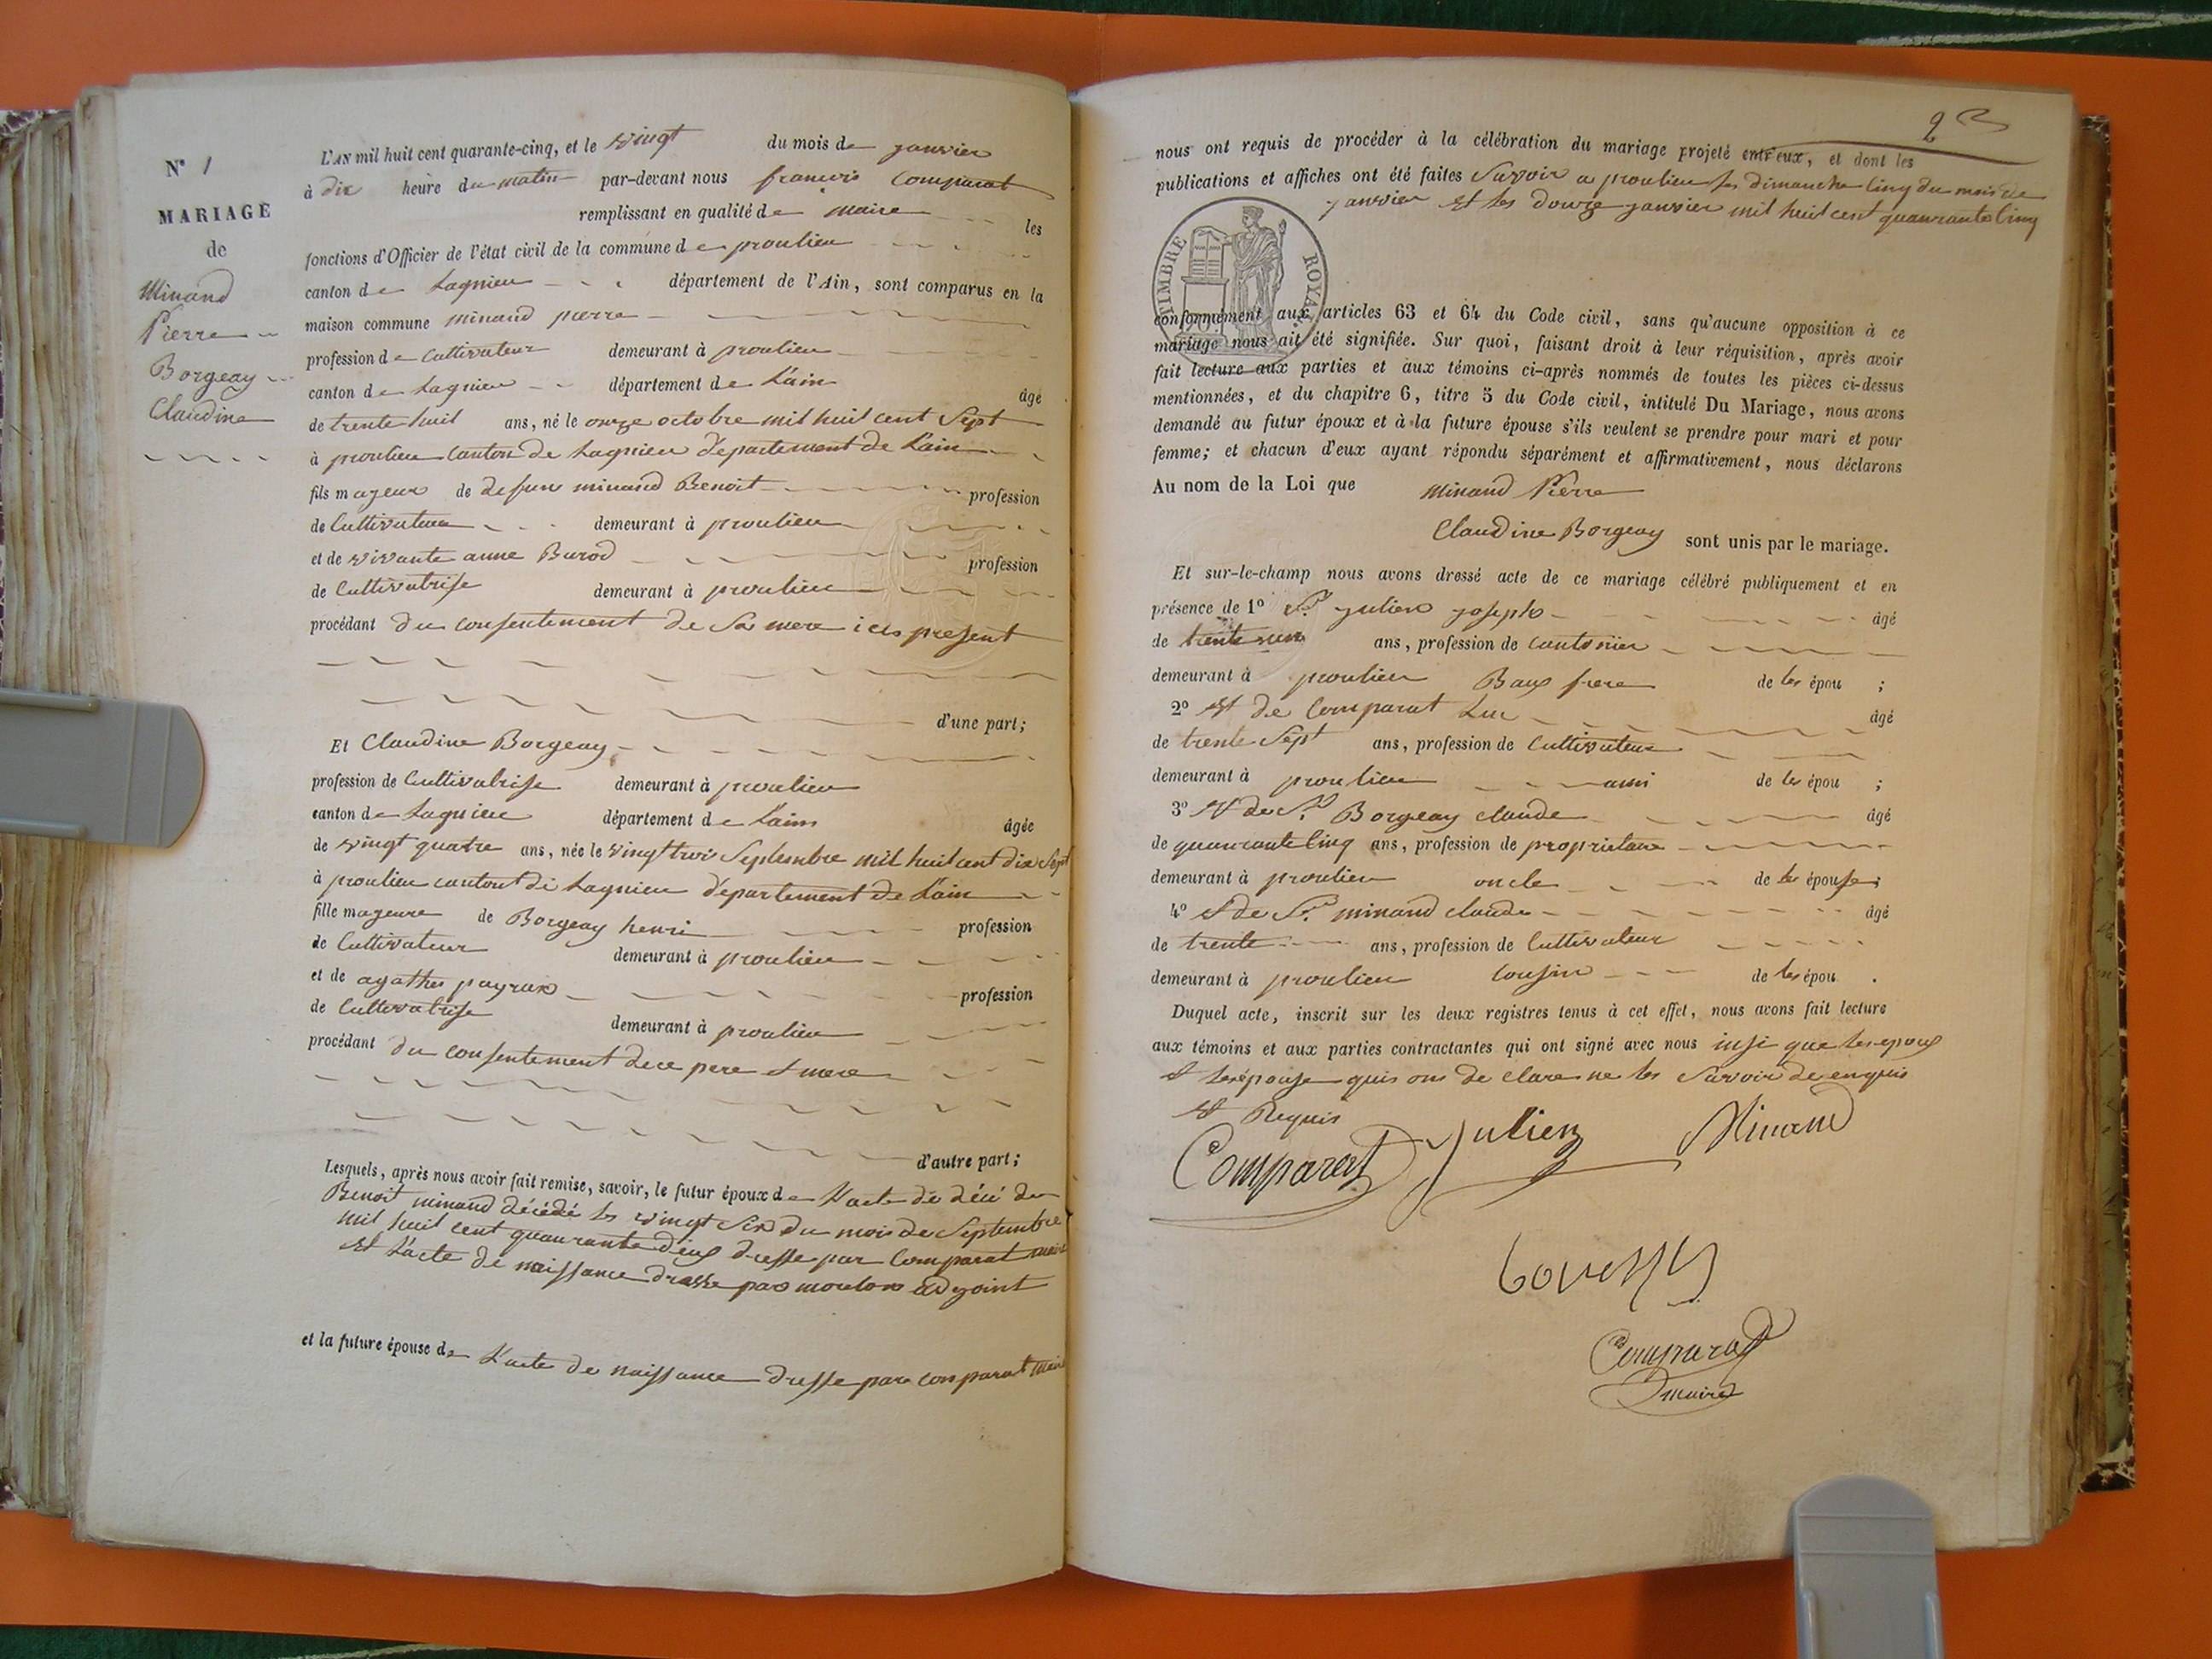 N° 1
MARIAGE
de
Minand
Pierre
Borgeay
Claudine
L'AN mil huit cent quarante-cinq, et le vingt du mois de janvier
à dix heure du matin par-devant nous francois Comparat
remplissant en qualité de maire les
fonctions d'Officier de l'état civil de la commune de proulieu
canton de Lagnieu département de l'Ain, sont comparus en la
maison commune minand pierre
profession de Cultivateur demeurant à proulieu
canton de Lagnieu département de L'ain âgé
de trente huit ans, né le onze octobre mil huit cent Sept
à proulieu Canton de Lagnieu département de L'ain
fils mageur de defun minand Benoit profession
de Cultivateur demeurant à proulieu
et de vivante anne Burod profession
de Cultivatrise demeurant à proulieu
procédant du consentement de Sa mere icis present
d'une part;
Et Claudine Borgeay
profession de Cultivatrise demeurant à proulieu
canton de Lagnieu département de L'ain âgée
de vingt quatre ans, née le vingt trois Septembre mil huit cent dix Sept
à proulieu canton di Lagnieu département de L'ain
fille mageure de Borgeay henri profession
de Cultivateur demeurant à proulieu
et de agathe payrax profession
de Cultivatrise demeurant à proulieu
procédant du consentement de ce pere et mere
d'autre part;
Lesquels, après nous avoir fait remise, savoir, le futur époux de L'acte de décé de
Benoit minand décédé les vingt Six du mois de Septembre
mil huit cent quauranté deux dresse par Comparat maire
et L'acte de naissance drasse par moulon adjoint
et la future épouse de L'acte de naissance dresse par comparat maire
2
nous ont requis de procéder à la célébration du mariage projeté entr'eux, et dont les
publications et affiches ont été faites Savoir a proulieu les dimanche Cinq du mois de
janvier et les douze janvier mil huit cent quauranta Cinq
TIMBRE ROYAL
conformément aux articles 63 et 64 du Code civil, sans qu'aucune opposition à ce
mariage nous ait été signifiée. Sur quoi, faisant droit à leur réquisition, après avoir
fait lecture aux parties et aux témoins ci-après nommés de toutes les pièces ci-dessus
mentionnées, et du chapitre 6, titre 5 du Code civil, intitulé Du Mariage, nous avons
demandé au futur époux et à la future épouse s'ils veulent se prendre pour mari et pour
femme; et chacun d'eux ayant répondu séparément et affirmativement, nous déclarons
Au nom de la Loi que minand Pierre
Claudine Borgeay sont unis par le mariage.
Et sur-le-champ nous avons dressé acte de ce mariage célébré publiquement et en
présence de 1° Sr julien joseph âgé
de trente ans, profession de cantonier
demeurant à proulieu Baux frere de les épou ;
2° et de Comparat Luc âgé
de trente Sept ans, profession de Cultivateur
demeurant à proulieu ami de les épou ;
3° et de Sr Borgeay claude âgé
de quaurante Cinq ans, profession de proprietaire
demeurant à proulieu oncle de les épouse;
4° et de Sr minand claude âgé
de trente ans, profession de Cultivateur
demeurant à proulieu Cousin de les épou .
Duquel acte, inscrit sur les deux registres tenus à cet effet, nous avons fait lecture
aux témoins et aux parties contractantes qui ont signé avec nous insi que les epoux
et les épouse quis ons de clare ne les Savoir de enquis
et Requis
Comparat Jullien Minand
Comparat
maire